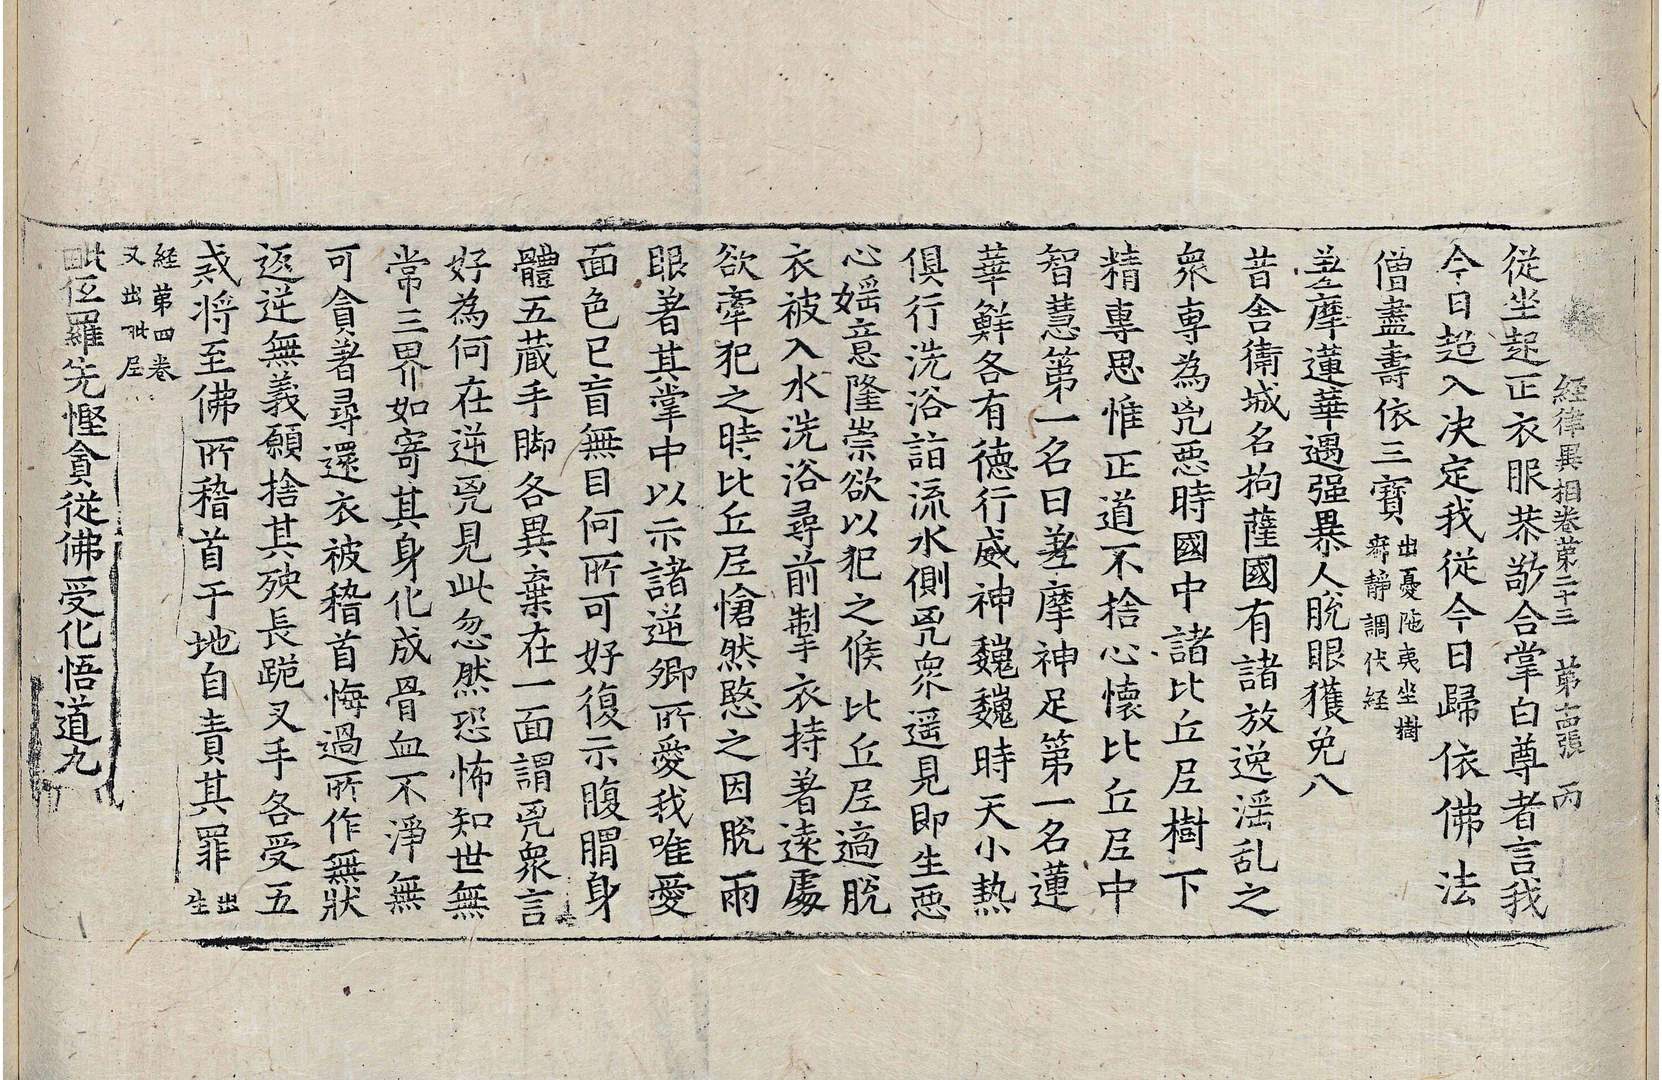 経律異相卷第二十三 第十四張 丙
從坐起正衣服恭敬合掌白尊者言我
今日超入決定我從今日歸依佛法
僧盡壽依三寶出憂陁夷坐樹
寂靜調伏経
差摩蓮華遇强暴人脫眼獲免八
昔舎衛城名拘薩國有諸放逸滛乱之
衆専為兇惡時國中諸比丘尼樹下
精專思惟正道不捨心懷比丘尼中
智慧第一名曰差摩神足第一名蓮
華鮮各有德行威神巍巍時天小熱
俱行洗浴詣流水側兇衆遥見即生惡
心婬意隆崇欲以犯之候比丘尼適脫
衣被入水洗浴尋前掣衣持著遠處
欲牽犯之時比丘尼愴然愍之因脫兩
眼著其掌中以示諸逆卿所愛我唯愛
面色已盲無目何所可好復示腹胃身
體五藏手脚各異棄在一面謂兇衆言
好為何在逆兇見此忽然恐怖知世無
常三界如寄其身化成骨血不淨無
可貪著尋還衣被稽首悔過所作無狀
返逆無義願捨其殃長跪叉手各受五
戒将至佛所稽首于地自責其罪出生
経第四卷
又出毗尼
毗伍羅先慳貪從佛受化悟道九